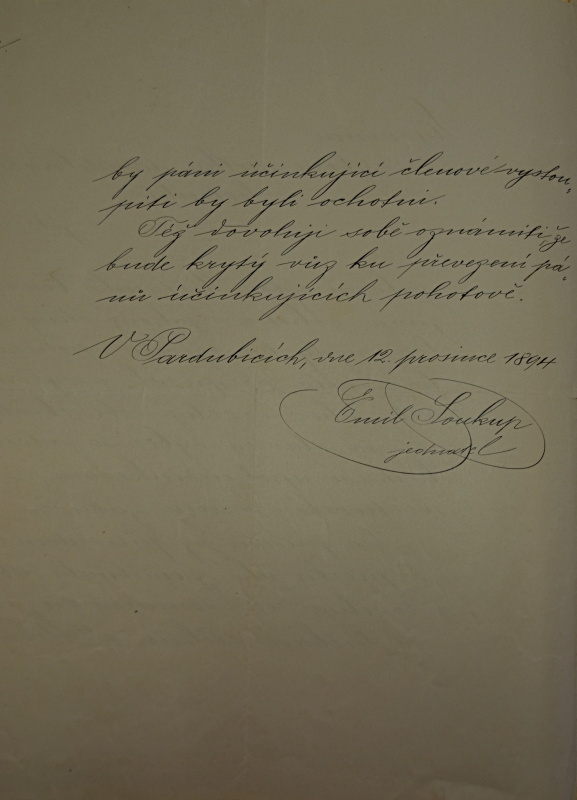 by páni účinkující členové vystou-
piti by byli ochotni.
Též dovoluji sobě oznámiti, že
bude krytý vůz ku převezení pá-
nů účinkujících pohotově.
V Pardubicích, dne 12. prosince 1894
Emil Soukup
jednatel